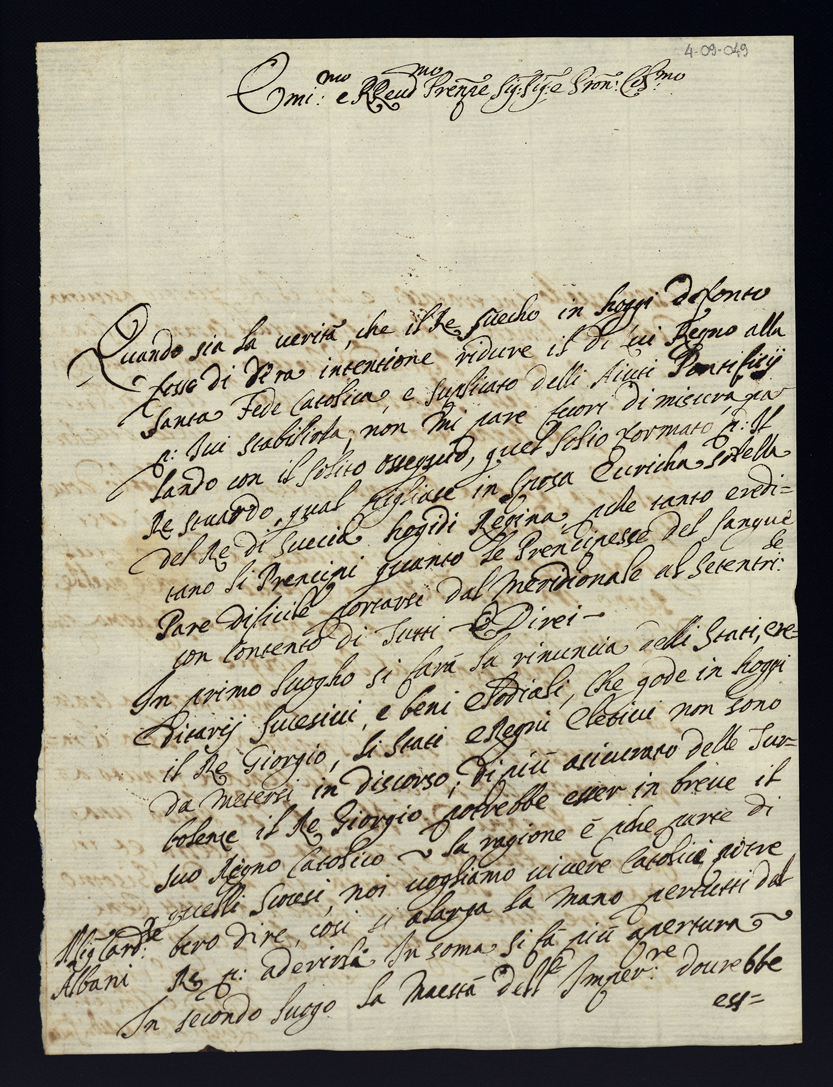 4-09-049
Emi:mo e RReud:mo Prenpe Sig: Sig:e e Pron: Col:mo
Quando sia la verità, che il Re Suecho in hoggi defonto
fosse di vera intentione ridure il di lui Regno alla
Santa Fede Catolica, e suplicato delli Aiuti Pontificij
p: sui stabiliota, non mi pare fuori di misura, par
lando con il solito ossequio, quel solio formato p: Il
Re Stuardo, qual pigliase in sposa Euricha sorella
del Re di Suecia hogidi Regina, che tanto eredi=
tano li Prencipi quanto le Prencipesse del sangue
Pare dificile portarsi dal Meridionale al Setentri: le
con contento di Tutti - Direi -
In primo luogho si farà la rinuncia delli Stati, ere=
ditarij sucesivi, e beni alodiali, che gode in hoggi
il Re Giorgio, li Stati e Regni Eletivi non sono
da metersi in discorso, di più asicurato delle Tur=
bolenze il Re Giorgio potrebbe esser in breve il
suo Regno Catolico la ragione è che parte di
quelli Suoesi, noi vogliamo vivere Catolici potre
bero dire, così si alarga la mano pertutti dal
Re p: aderirsi In soma si fà più apertura
Sig Card:le
Albani
In secondo luogo la Maestà dell' Imper:ore dourebbe
ess=